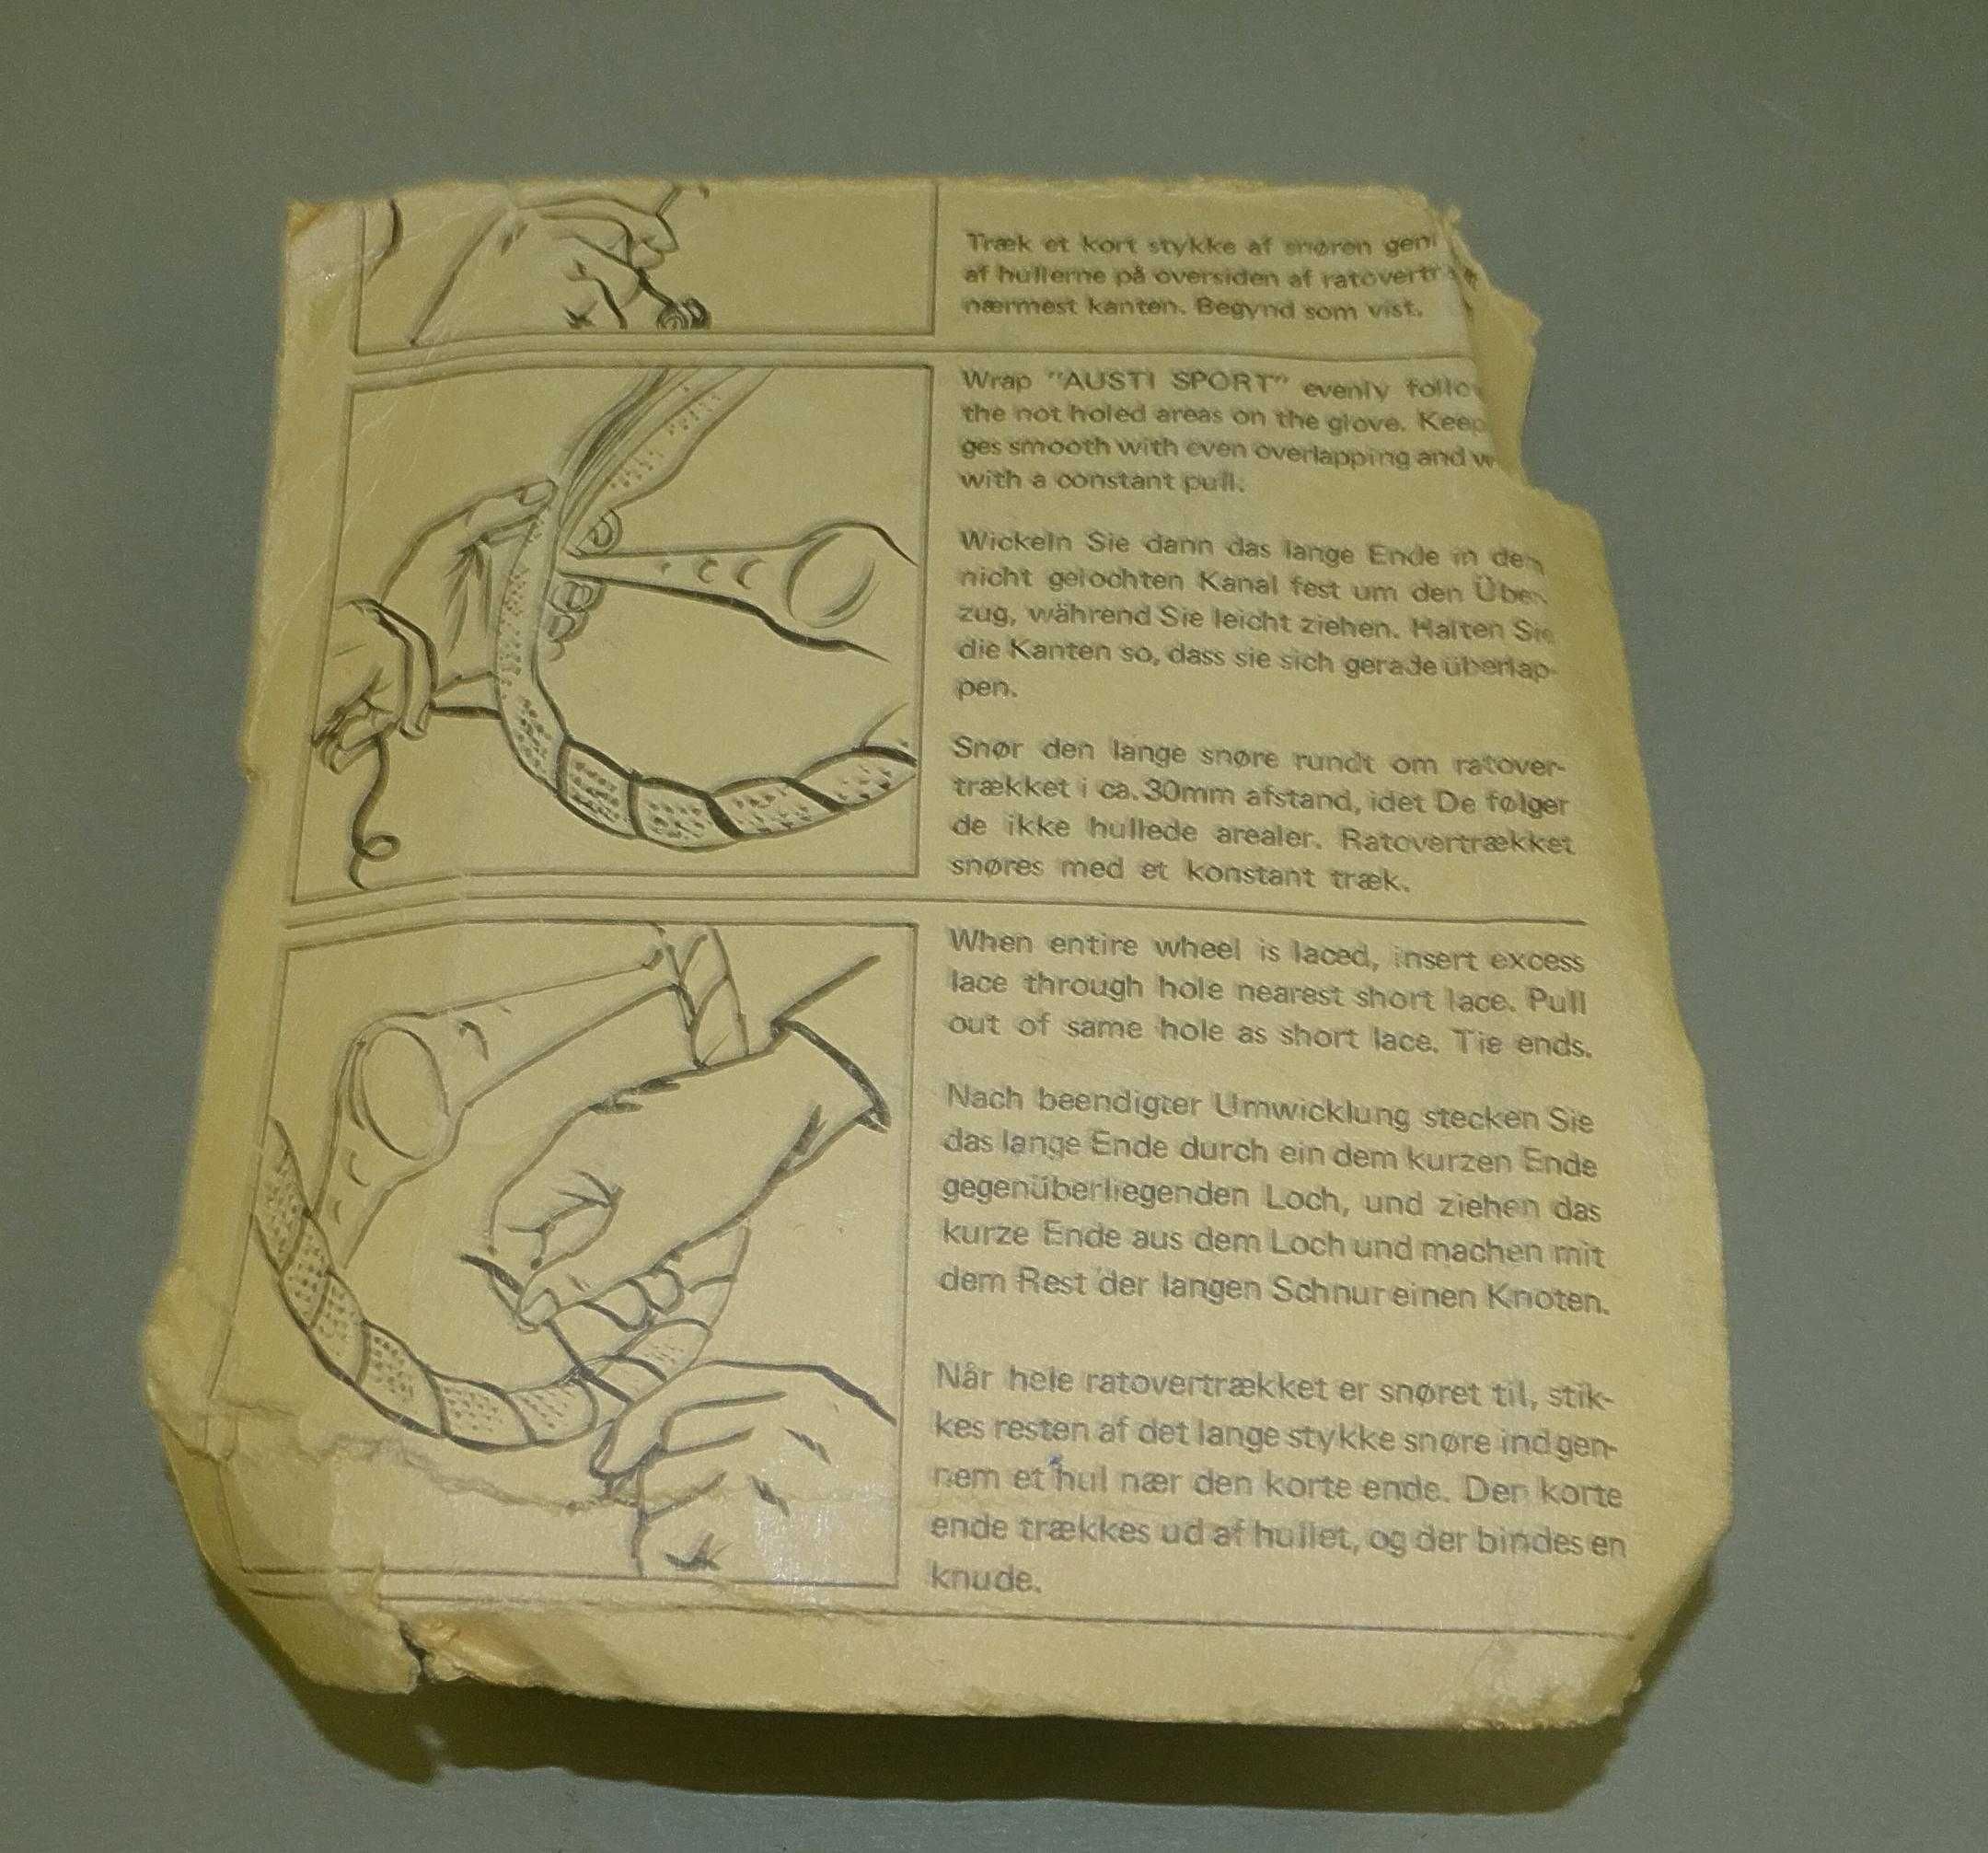 Træk et kort stykke af snøren
af hullerne på oversiden af
nærmest kanten. Begynd som vist.
Wrap "AUSTI SPORT" evenly
the not holed areas on the glove. Keep
ges smooth with even overlapping and
with a constant pull.
Wickeln Sie dann das lange Ende in den
nicht gelochten Kanal fest um den Über-
zug, während Sie leicht ziehen. Halten Sie
die Kanten so, dass sie sich gerade überlap-
pen.
Snør den lange snøre rundt om ratover-
trækket i ca. 30mm afstand, idet De følger
de ikke hullede arealer. Ratovertrækket
snøres med et konstant træk.
When entire wheel is laced, insert excess
lace through hole nearest short lace. Pull
out of same hole as short lace. Tie ends.
Nach beendigter Umwicklung stecken Sie
das lange Ende durch ein dem kurzen Ende
gegenüberliegenden Loch, und ziehen das
kurze Ende aus dem Loch und machen mit
dem Rest der langen Schnur einen Knoten.
Når hele ratovertrækket er snøret til, stik-
kes resten af det lange stykke snøre ind gen-
nem et hul nær den korte ende. Den korte
ende trækkes ud af hullet, og der bindes en
knude.